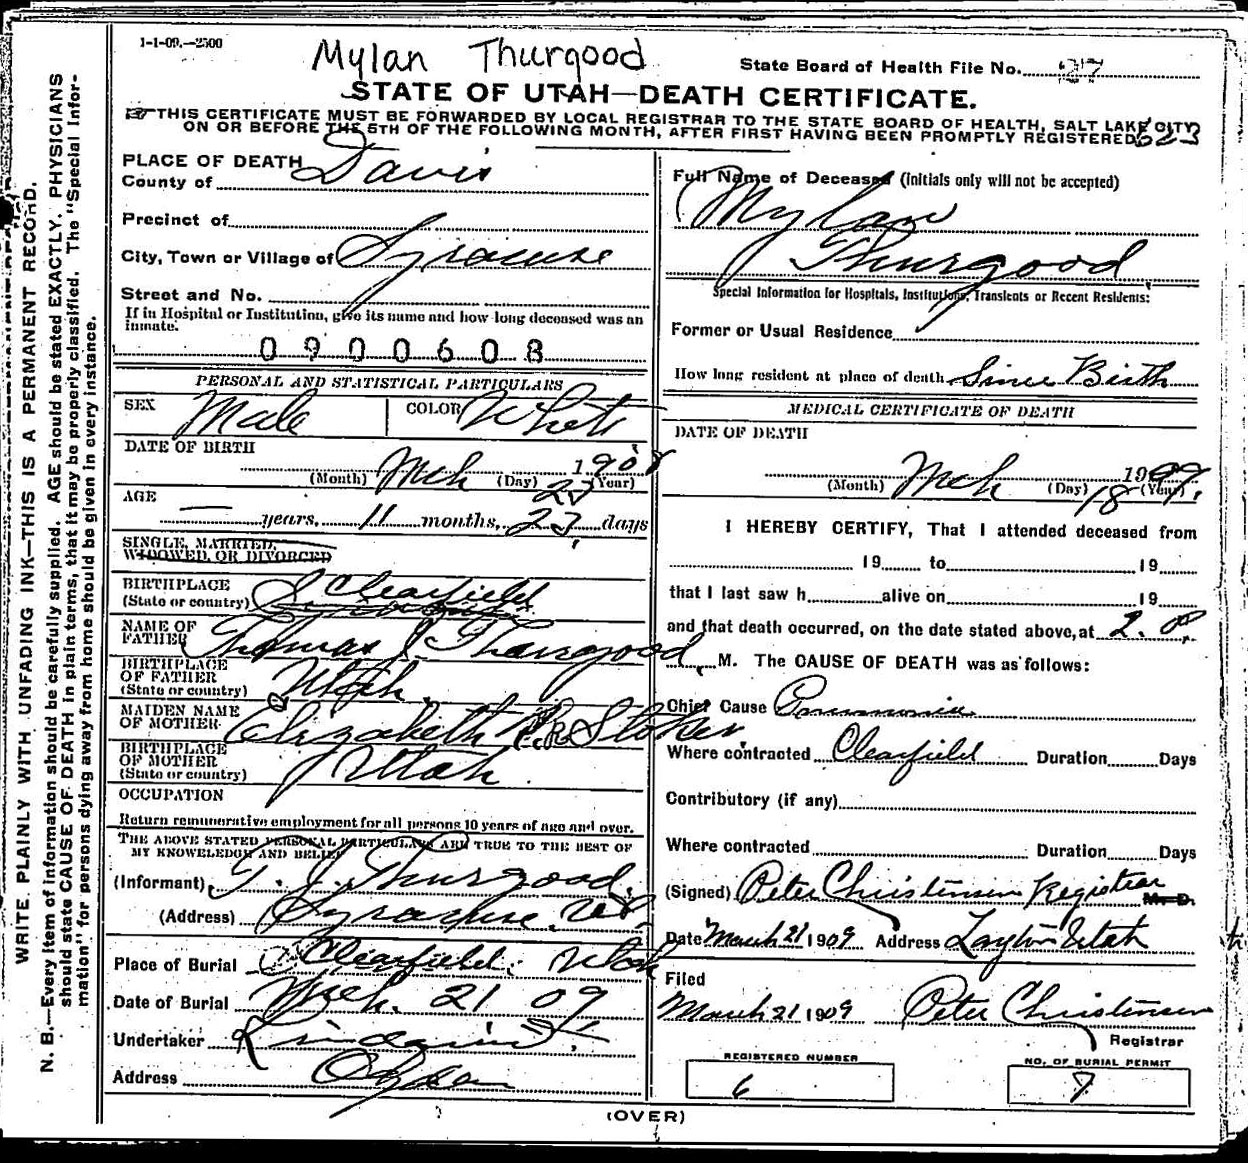 1-1-09.—2500
Mylan Thurgood
State Board of Health File No. 27
STATE OF UTAH—DEATH CERTIFICATE.
THIS CERTIFICATE MUST BE FORWARDED BY LOCAL REGISTRAR TO THE STATE BOARD OF HEALTH, SALT LAKE CITY
ON OR BEFORE THE 5TH OF THE FOLLOWING MONTH, AFTER FIRST HAVING BEEN PROMPTLY REGISTERED
623
PLACE OF DEATH
County of Davis
Precinct of
City, Town or Village of Syracuse
Street and No.
If in Hospital or Institution, give its name and how long deceased was an
inmate.
0 9 0 0 6 0 8
PERSONAL AND STATISTICAL PARTICULARS
SEX Male COLOR White
DATE OF BIRTH
Mch 1908
(Month) (Day) (Year)
AGE
— years, 11 months, days
SINGLE, MARRIED,
WIDOWED, OR DIVORCED
BIRTHPLACE
(State or country) Clearfield
NAME OF
FATHER Thomas J Thurgood
BIRTHPLACE
OF FATHER
(State or country) Utah.
MAIDEN NAME
OF MOTHER Elizabeth Stoker
BIRTHPLACE
OF MOTHER
(State or country) Utah
OCCUPATION
Return remunerative employment for all persons 10 years of age and over.
THE ABOVE STATED PERSONAL PARTICULARS ARE TRUE TO THE BEST OF
MY KNOWELEDGE AND BELIEF
(Informant) T. J. Thurgood.
(Address) Syracuse
Place of Burial Clearfield, Utah
Date of Burial Mch. 21 09
Undertaker
Address Ogden
Full Name of Deceased (initials only will not be accepted)
Mylan
Thurgood
Special Information for Hospitals, Institutions, Transients or Recent Residents:
Former or Usual Residence
How long resident at place of death Since Birth
MEDICAL CERTIFICATE OF DEATH
DATE OF DEATH
Mch 18 1909.
(Month) (Day) (Year)
I HEREBY CERTIFY, That I attended deceased from
19 to 19
that I last saw h alive on 19
and that death occurred, on the date stated above, at 2. P.
M. The CAUSE OF DEATH was as follows:
Chief Cause Pneumonia
Where contracted Clearfield Duration Days
Contributory (if any)
Where contracted Duration Days
(Signed) Peter Christensen Registrar M. D.
Date March 21 1909 Address Layton Utah
Filed
March 21 1909 Peter Christensen
Registrar
REGISTERED NUMBER
6
NO. OF BURIAL PERMIT
7
(OVER)
WRITE PLAINLY WITH UNFADING INK—THIS IS A PERMANENT RECORD.
N. B.—Every item of information should be carefully supplied. AGE should be stated EXACTLY. PHYSICIANS
should state CAUSE OF DEATH in plain terms, that it may be properly classified. The "Special Infor-
mation" for persons dying away from home should be given in every instance.